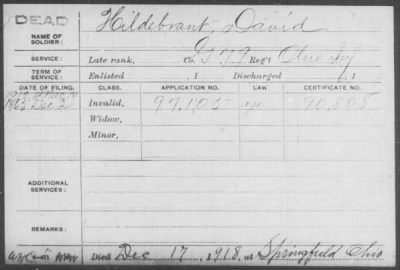 DEAD
NAME OF SOLDIER: Hildebrant, David
SERVICE: Late rank, Co. G 79 Reg't Ohio Inf
TERM OF SERVICE: Enlisted , 1 Discharged , 1
DATE OF FILING. CLASS. APPLICATION NO. LAW. CERTIFICATE NO.
Dec 2 Invalid, 97.105 90.808
Widow,
Minor,
ADDITIONAL SERVICES:
REMARKS:
Died Dec 17, 1918, at Springfield Ohio